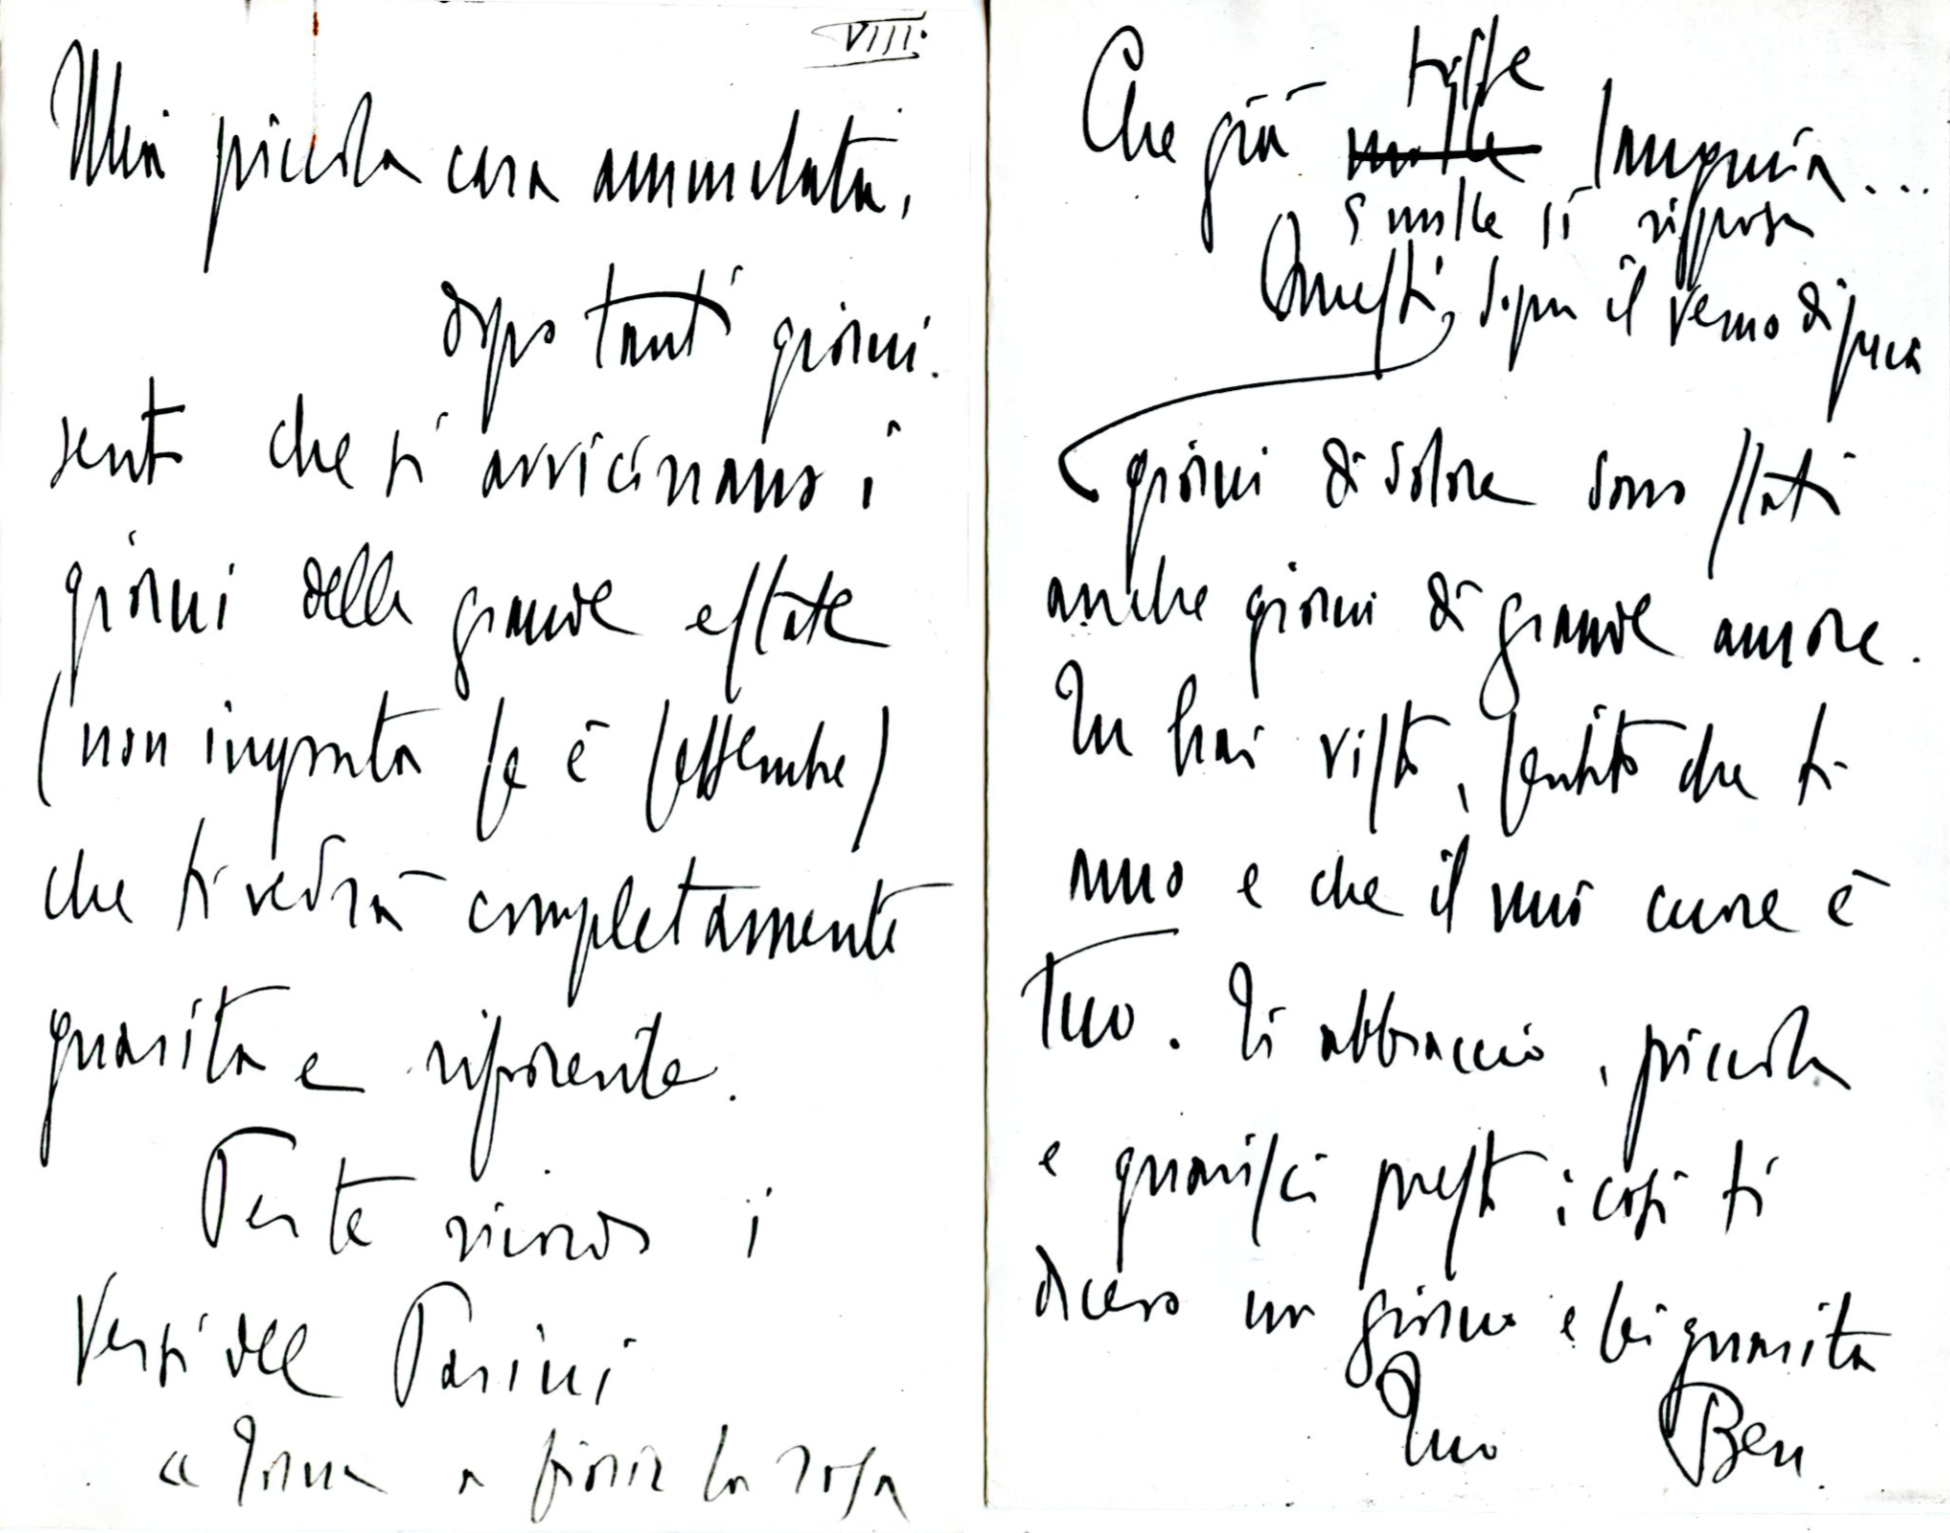 VIII.
Mia piccola cara ammalata,
dopo tanti giorni
sento che si avvicinano i
giorni della grande estate
(non importa se è settembre)
che ti vedrà completamente
guarita e rifiorente.
Per te ricordo i
versi del Parini
« Torna a fiorir la rosa
triste
Che già molle languia...
E molle si riposa
Questi, sopra il verno di pria
giorni di dolore sono stati
anche giorni di grande amore.
Tu hai visto, sentito che ti
amo e che il mio cuore è
tuo. Ti abbraccio, piccola
e guarisci presto; così ti
dicevo un giorno e sei guarita
Tuo Ben.